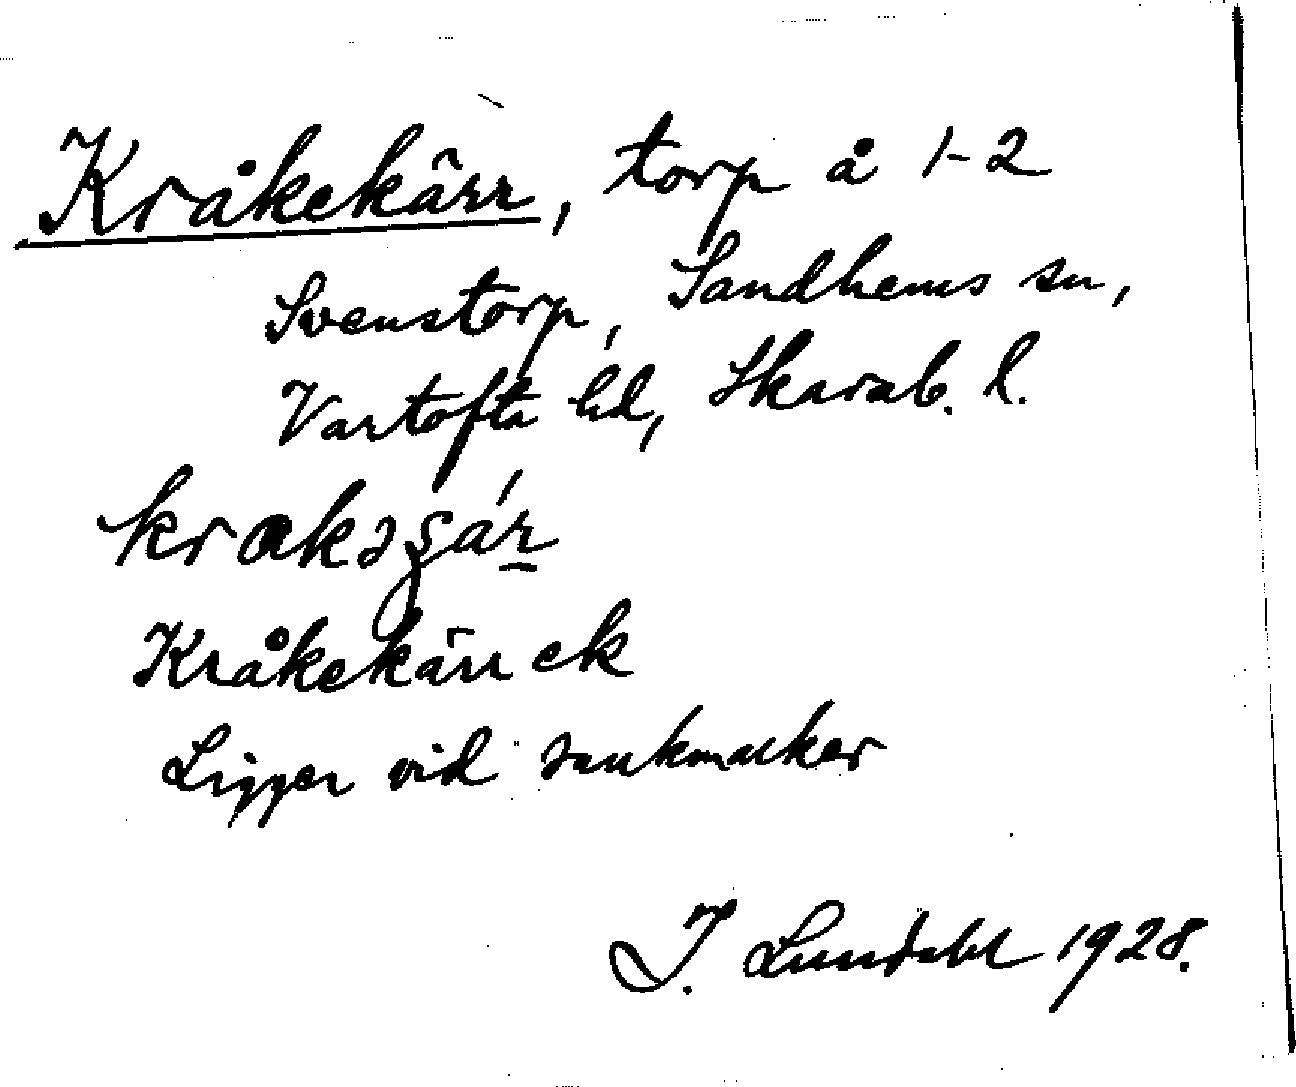 Kråkekärr, torp å 1-2
Svenstorp, Sandhems sn,
Vartofta hd, Skarab. l.
krakəʂár
Kråkekärr ek
Ligger vid sankmarker
I. Lundahl 1928.